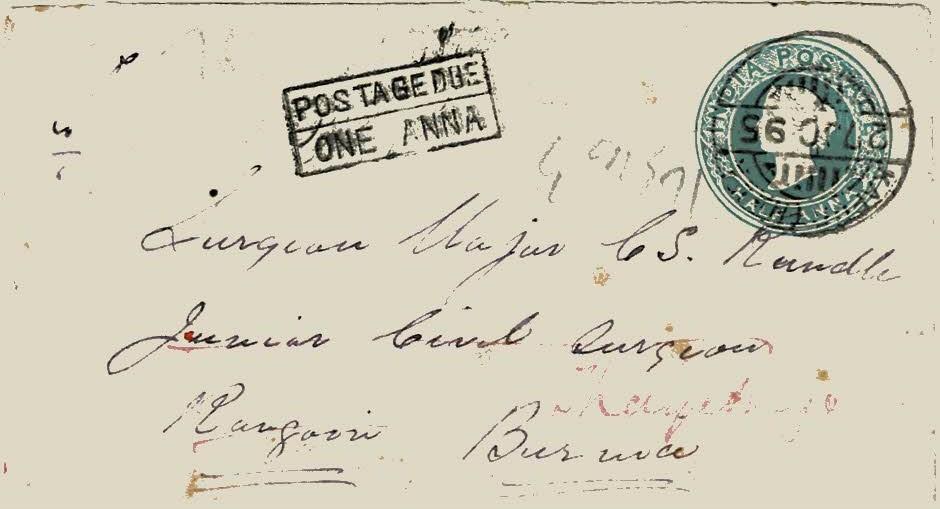 POSTAGE DUE
ONE ANNA
INDIA POSTAGE
HALF ANNA
Surgeon Major C S. Rundle
Junior Civil Surgeon
Rangoon Burma